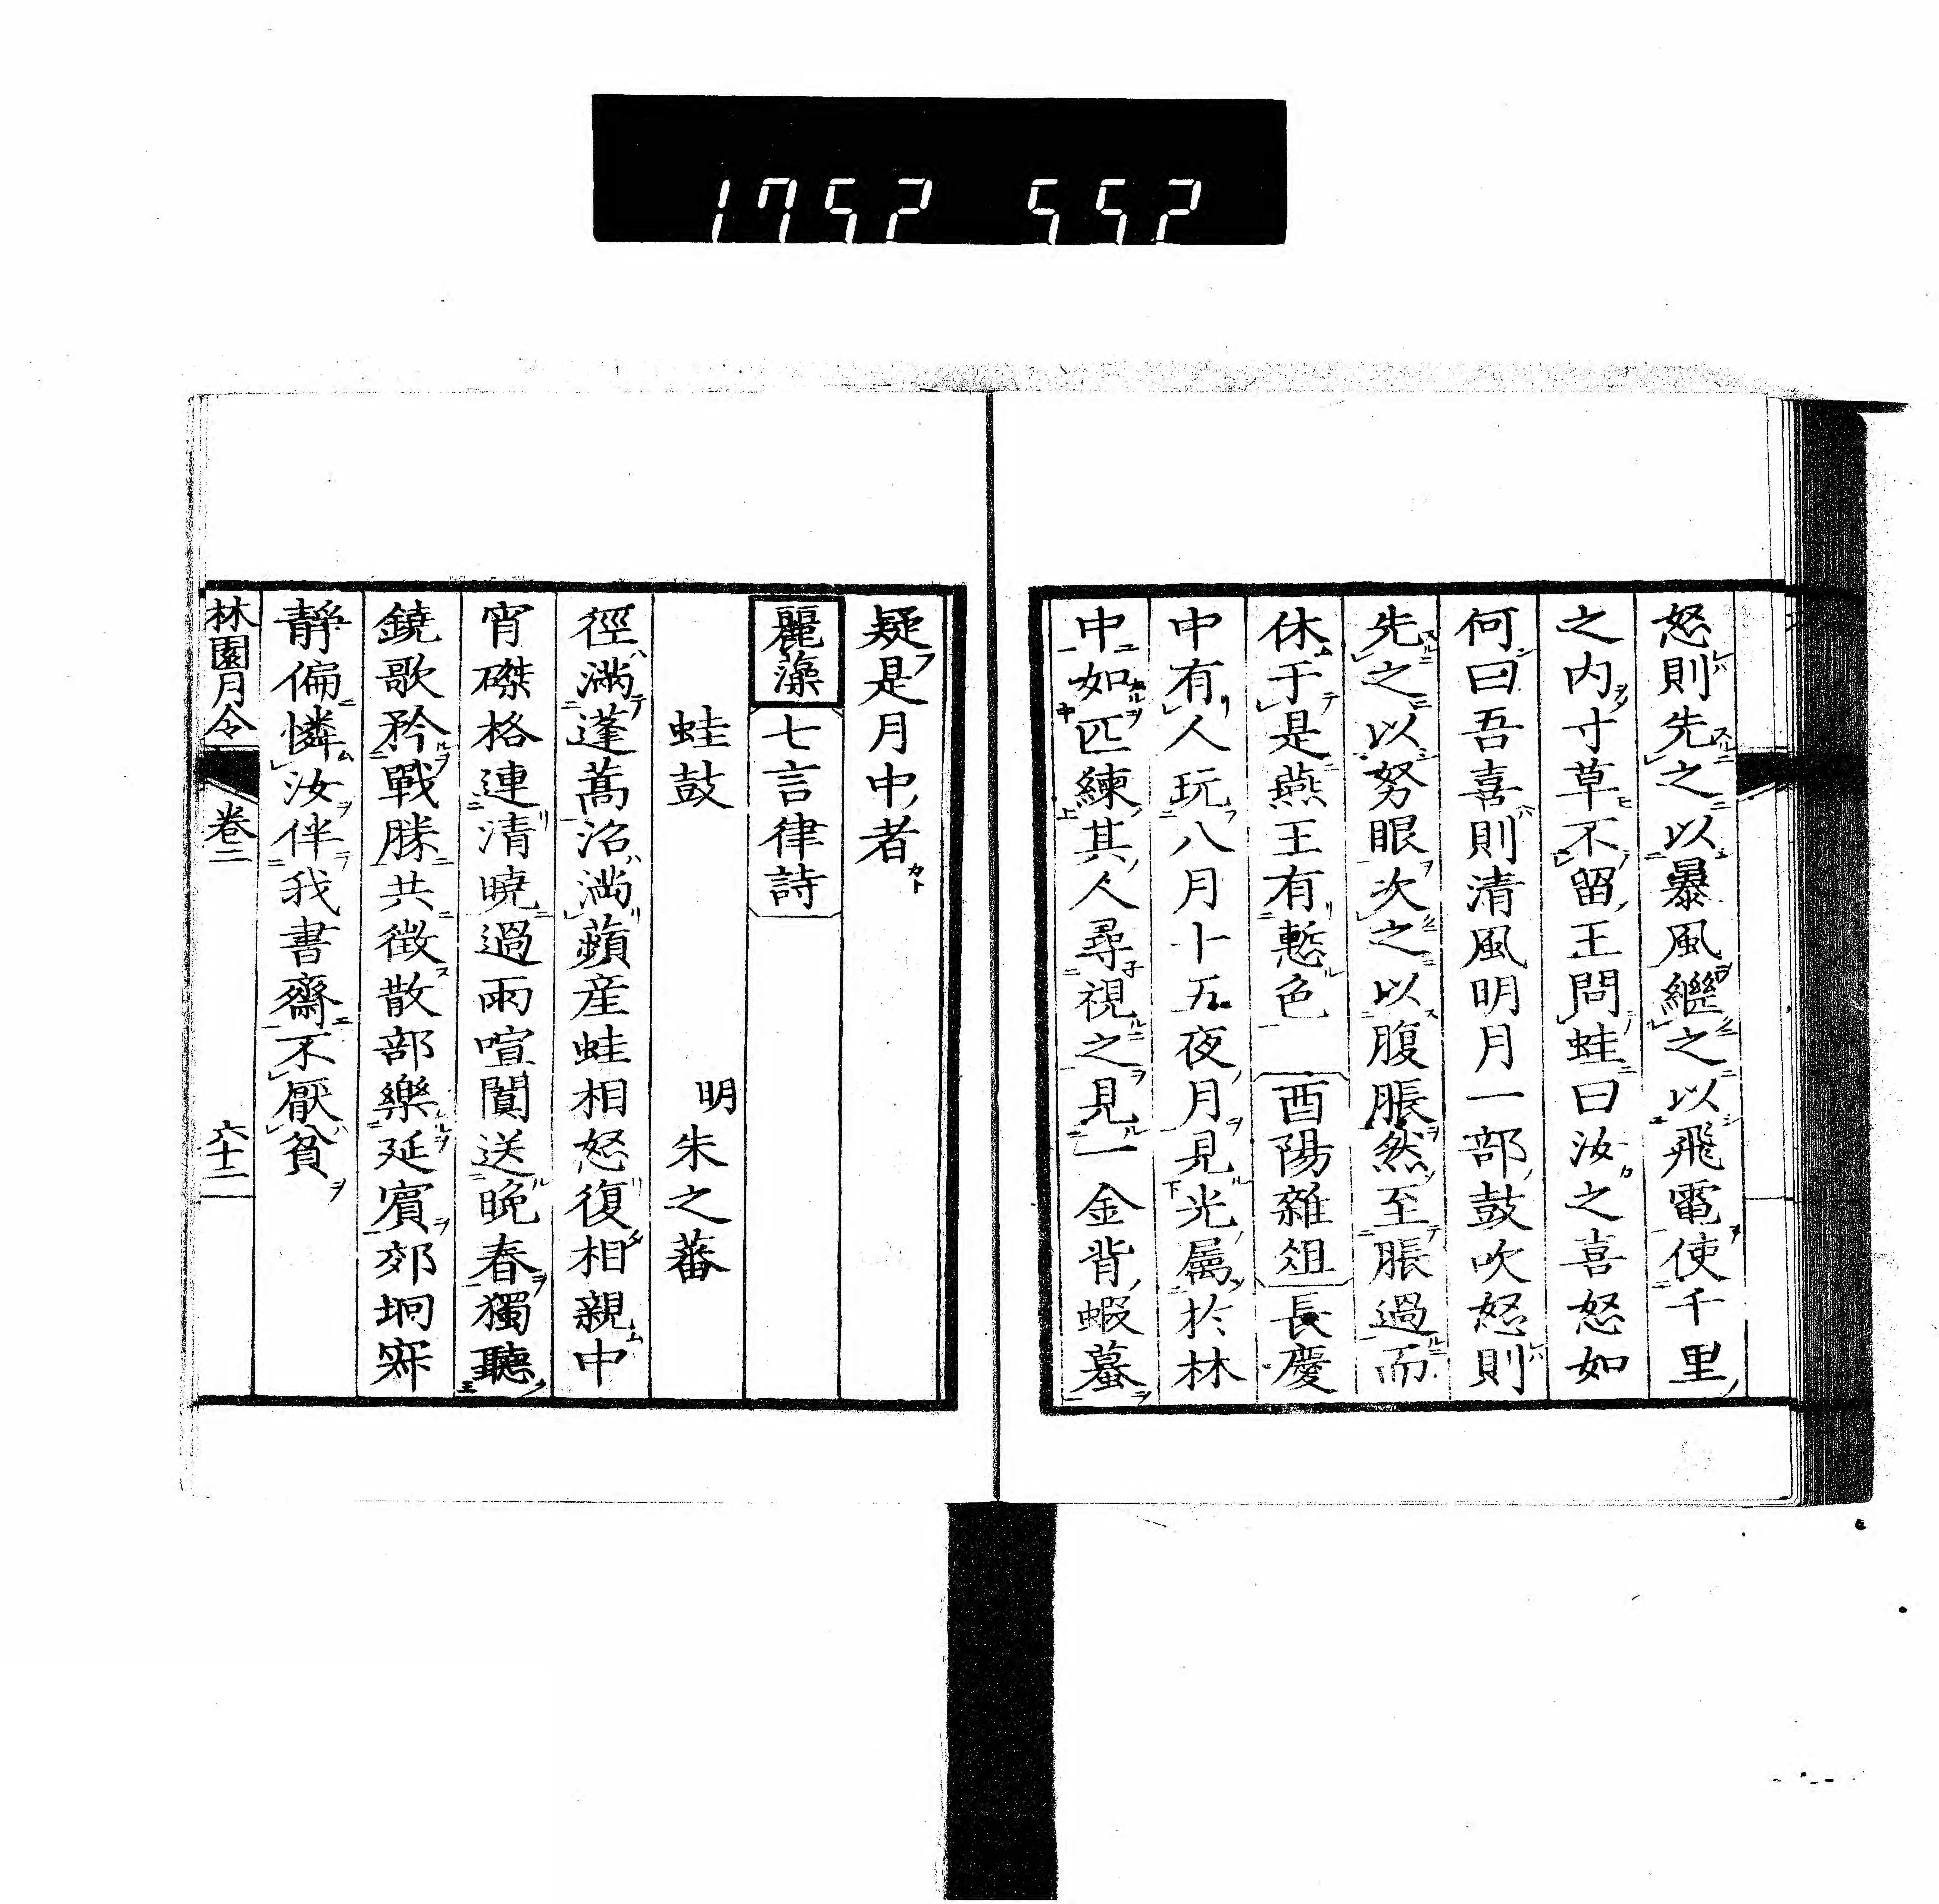 1752 552
怒則先之以暴風繼之以飛電使千里
之内寸草不留王問蛙曰汝之喜怒如
何曰吾喜則清風明月一部鼓吹怒則
先之以努眼次之以腹脹然至脹過而
休于是燕王有慙色 酉陽雜俎 長慶
中有人玩八月十五夜月見光屬於林
中如匹練其人尋視之見一金背蝦蟇
疑是月中者
麗藻 七言律詩
蛙鼓 明 朱之蕃
徑滿蓬蒿沼滿蘋産蛙相怒復相親中
宵磔格連清曉過雨喧闐送晚春獨聽
鐃歌矜戰勝共徴散部樂延賓郊坰寂
靜偏憐汝伴我書齋不厭貧
林園月令 卷二 六十二